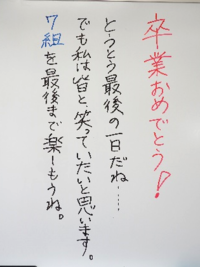 卒業おめでとう!
とうとう最後の一日だね……
でも私は皆と、笑っていたいと思います。
7組を最後まで楽しもうね。